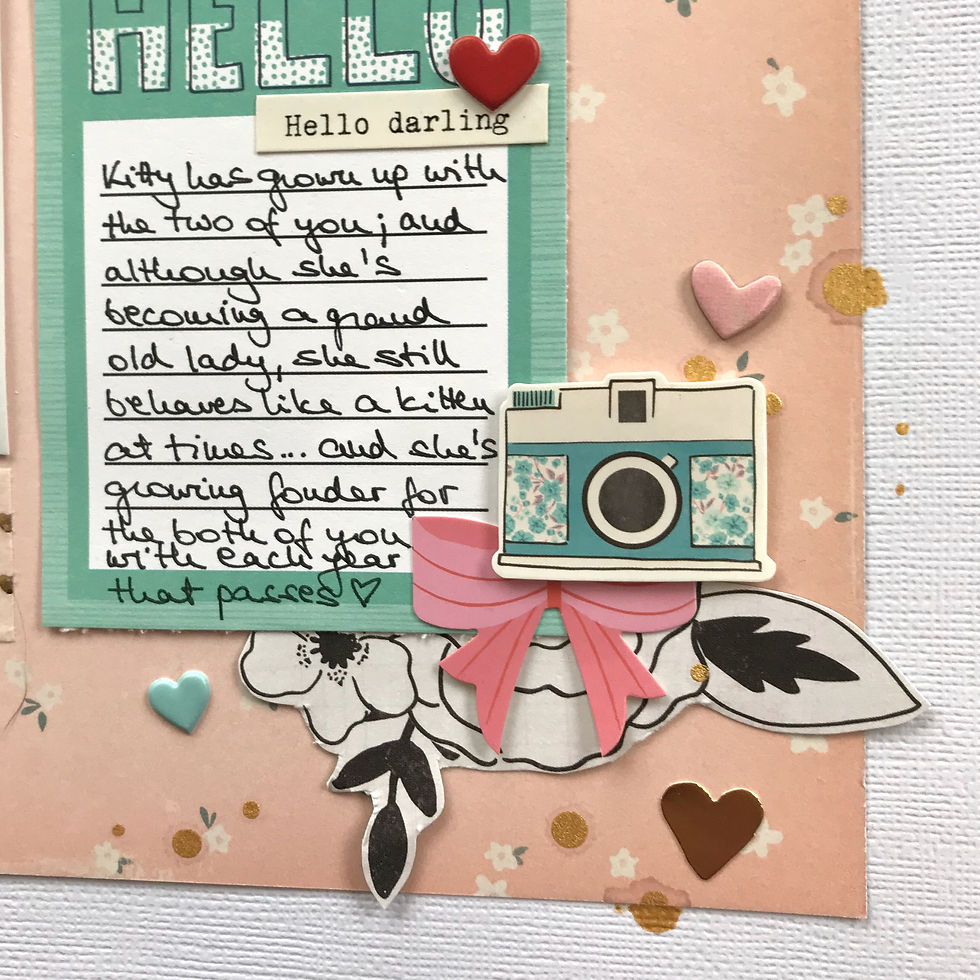 HELLO
Hello darling
Kitty has grown up with
the two of you; and
although she's
becoming a grand
old lady, she still
behaves like a kitten
at times... and she's
growing fonder for
the both of you
with each year
that passes ♡